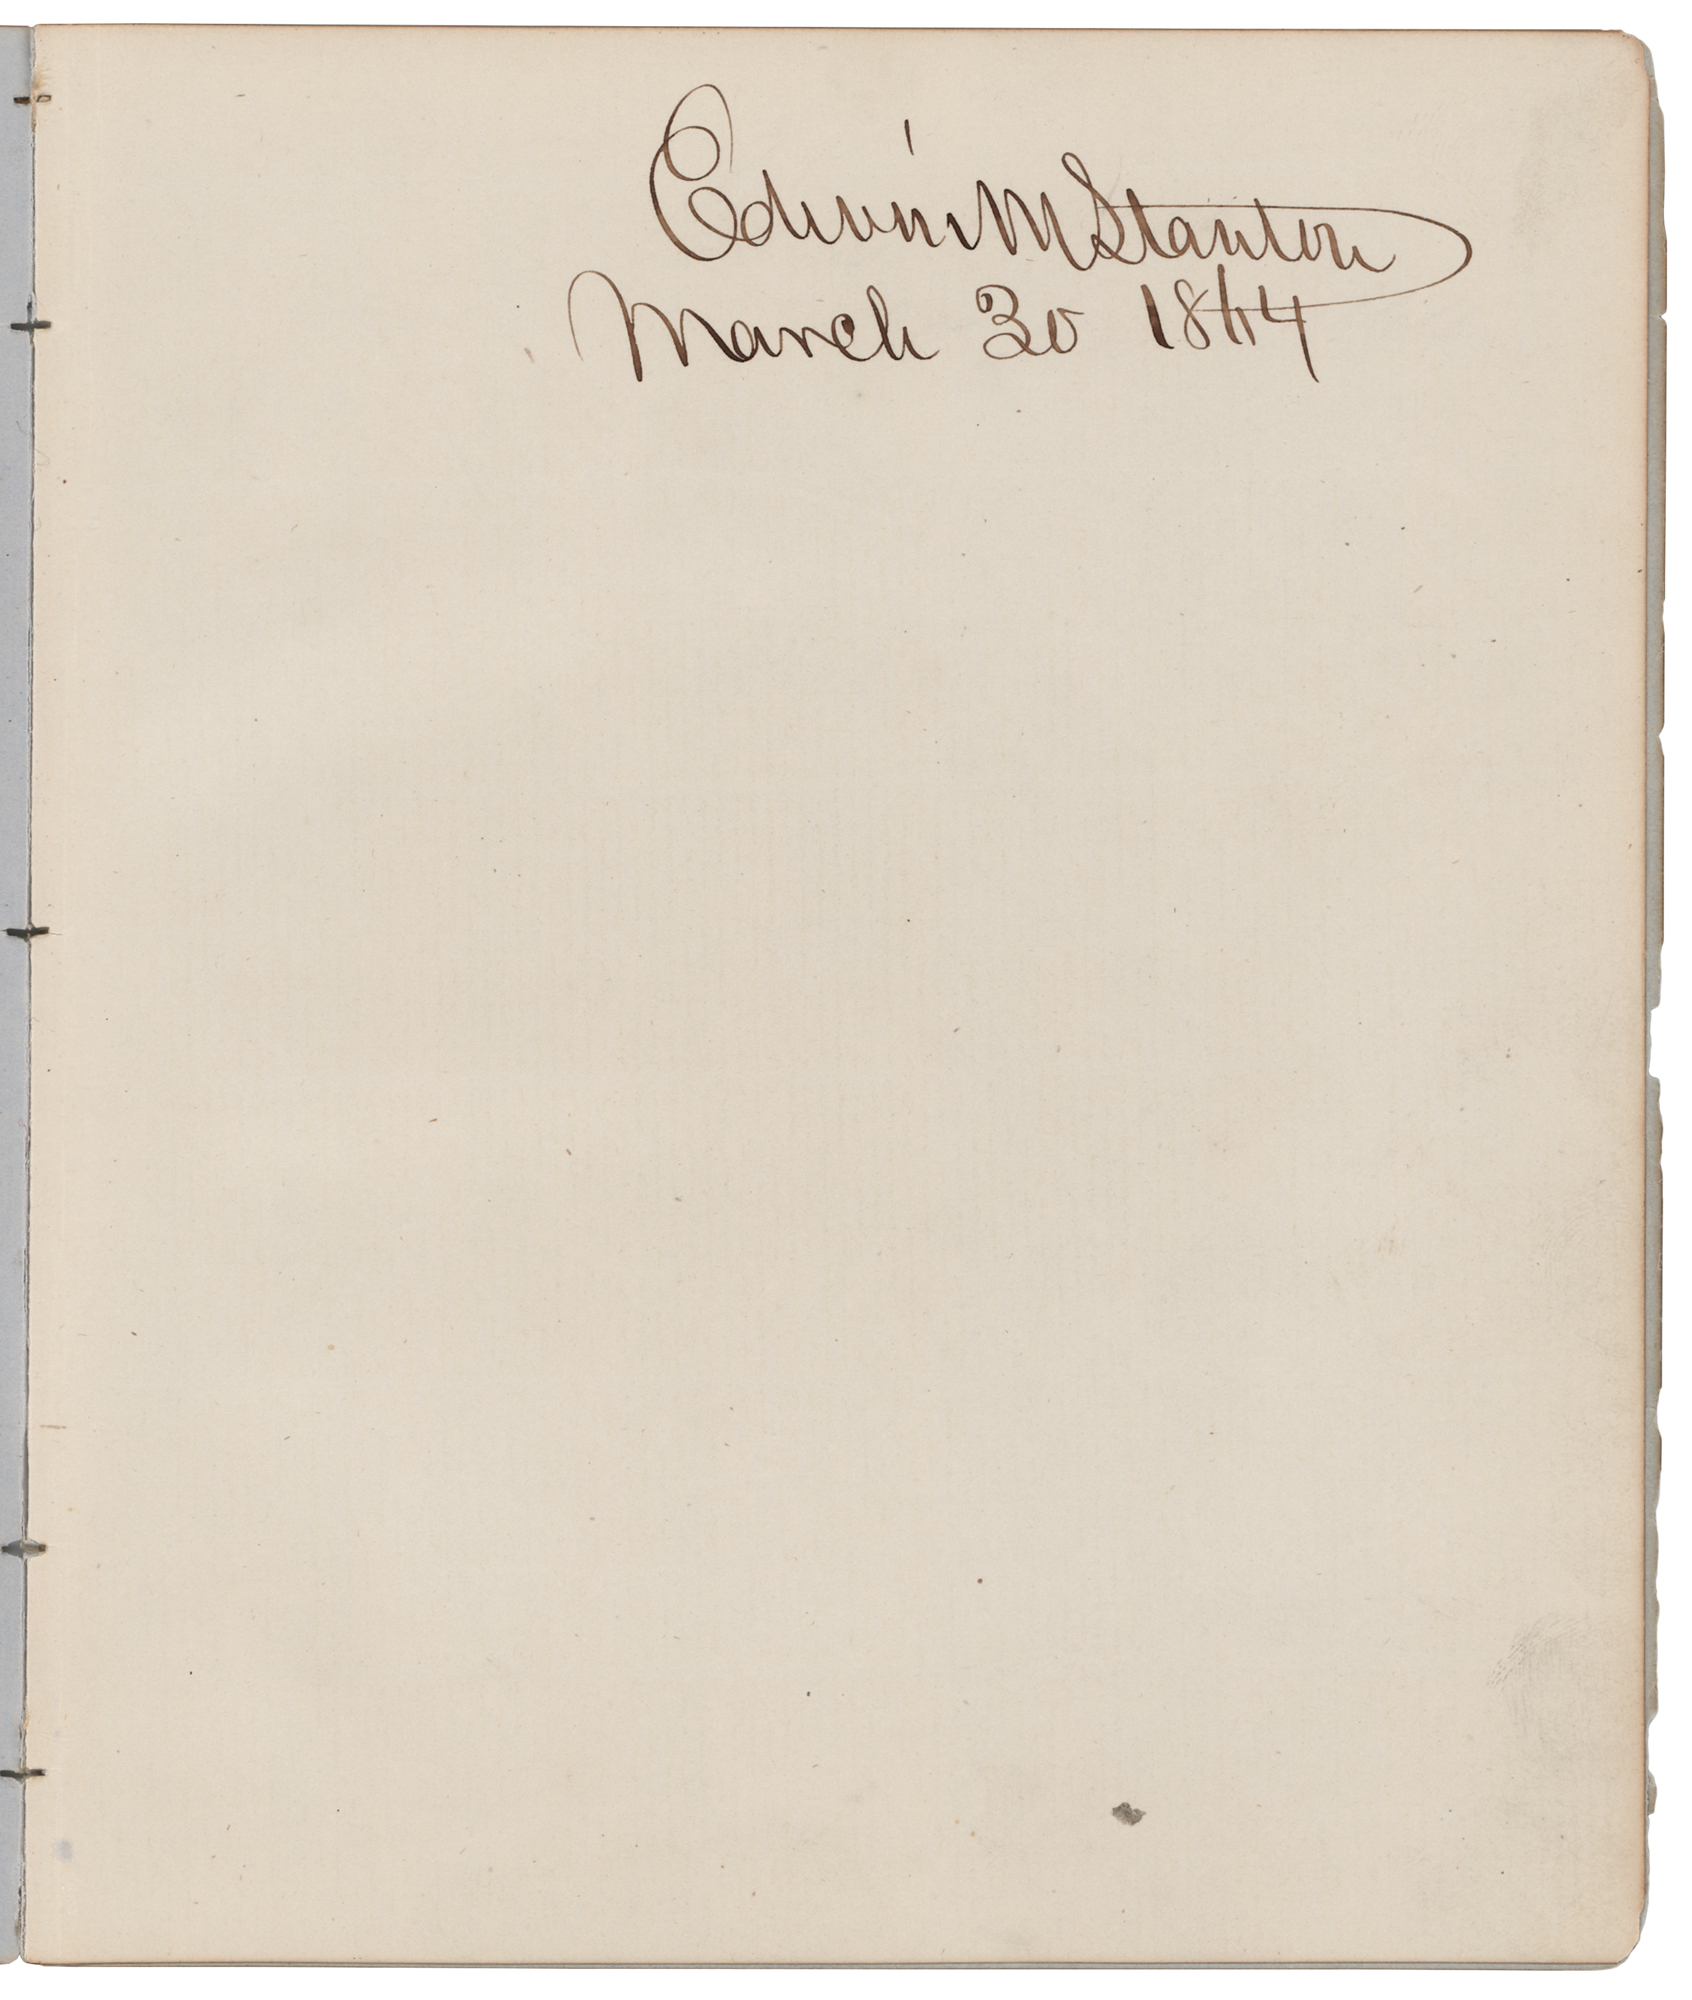 Edwin M Stanton
March 30 1864